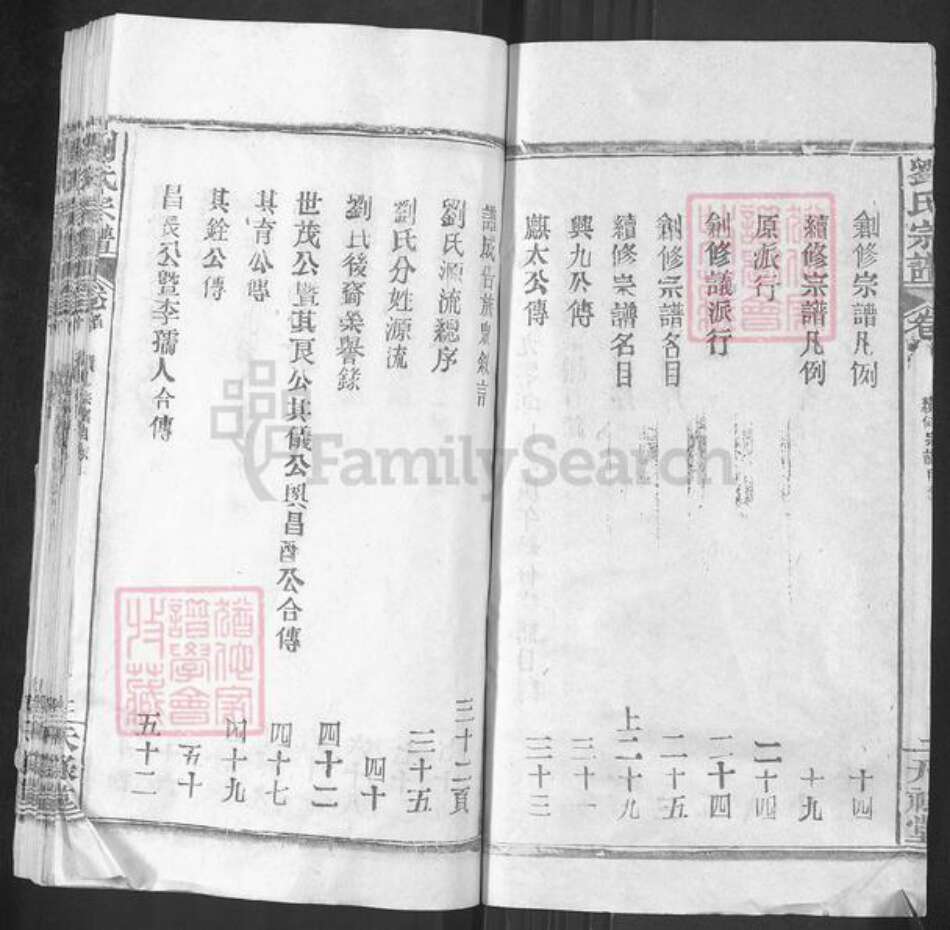 劉氏宗譜
創修宗譜凡例 十四
續修宗譜凡例 十九
原派行 二十四
創修議派行 二十四
創修宗譜名目 二十五
續修宗譜名目 上二十九
興九公傳 三十一
麒太公傳 三十三
劉氏源流總序 三十二頁
劉氏分姓源流 三十五
劉氏後裔彙譽錄 四十
世茂公暨其良公其儀公與昌酉公合傳 四十二
其育公傳 四十七
其銓公傳 四十九
五十
昌長公暨李孺人合傳 五十二
劉氏宗譜
譜學會
收藏
FamilySearch